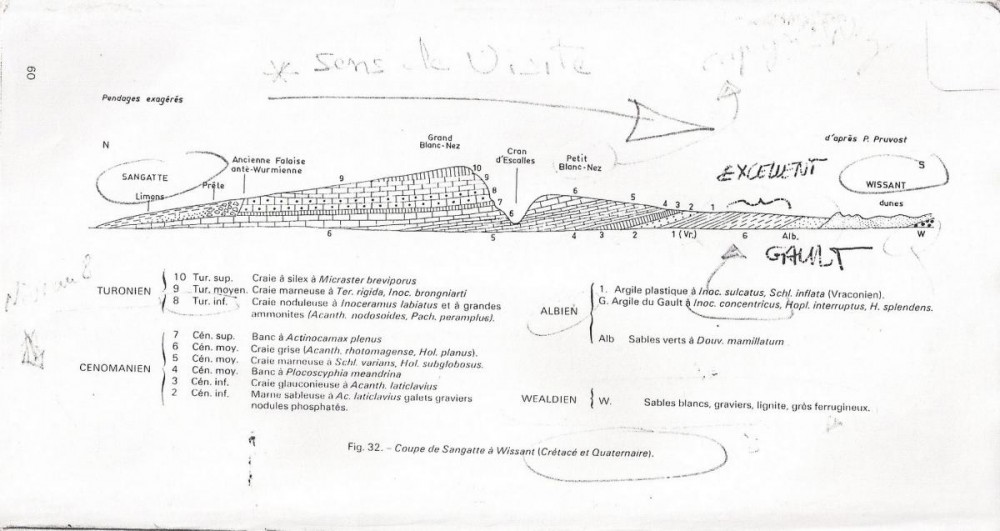 60
* Sens de Visite
Pendages exagérés
d'après P. Pruvost
N
S
Grand
Blanc-Nez
Cran
d'Escalles
Petit
Blanc-Nez
Ancienne Falaise
anté-Wurmienne
SANGATTE
Prêle
Limons
EXCELLENT
WISSANT
dunes
9 10 9 8 7 6 6 5 4 3 2 1
6 5 4 3 2 1 (Vr.) 6 Alb. W
GAULT
TURONIEN
10 Tur. sup. Craie à silex à Micraster breviporus
9 Tur. moyen. Craie marneuse à Ter. rigida, Inoc. brongniarti
8 Tur. inf. Craie noduleuse à Inoceramus labiatus et à grandes
ammonites (Acanth. nodosoides, Pach. peramplus).
CENOMANIEN
7 Cén. sup. Banc à Actinocamax plenus
6 Cén. moy. Craie grise (Acanth. rhotomagense, Hol. planus).
5 Cén. moy. Craie marneuse à Schl. varians, Hol. subglobosus.
4 Cén. moy. Banc à Plocoscyphia meandrina
3 Cén. inf. Craie glauconieuse à Acanth. laticlavius
2 Cén. inf. Marne sableuse à Ac. laticlavius galets graviers
nodules phosphatés.
ALBIEN
1. Argile plastique à Inoc. sulcatus, Schl. inflata (Vraconien).
G. Argile du Gault à Inoc. concentricus, Hopl. interruptus, H. splendens.
Alb Sables verts à Douv. mamillatum
WEALDIEN
W. Sables blancs, graviers, lignite, grès ferrugineux.
Fig. 32. – Coupe de Sangatte à Wissant (Crétacé et Quaternaire).